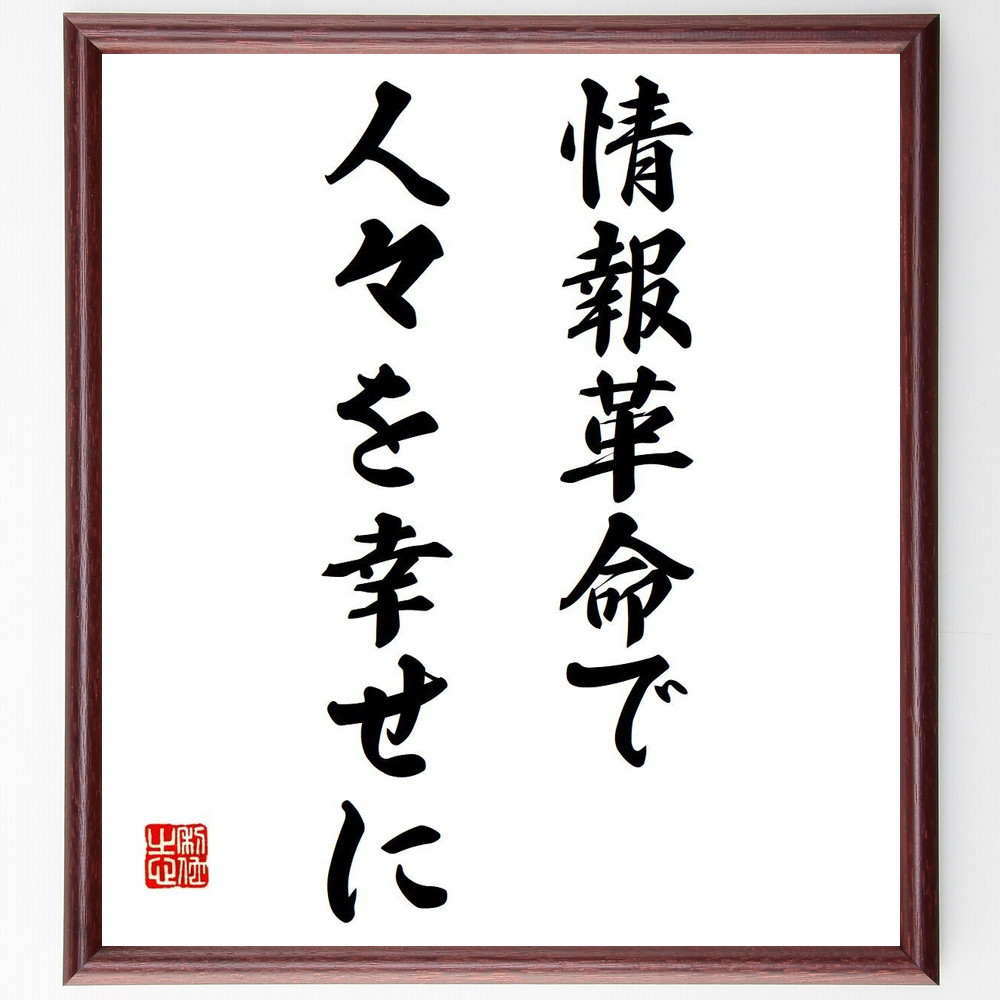 情報革命で
人々を幸せに